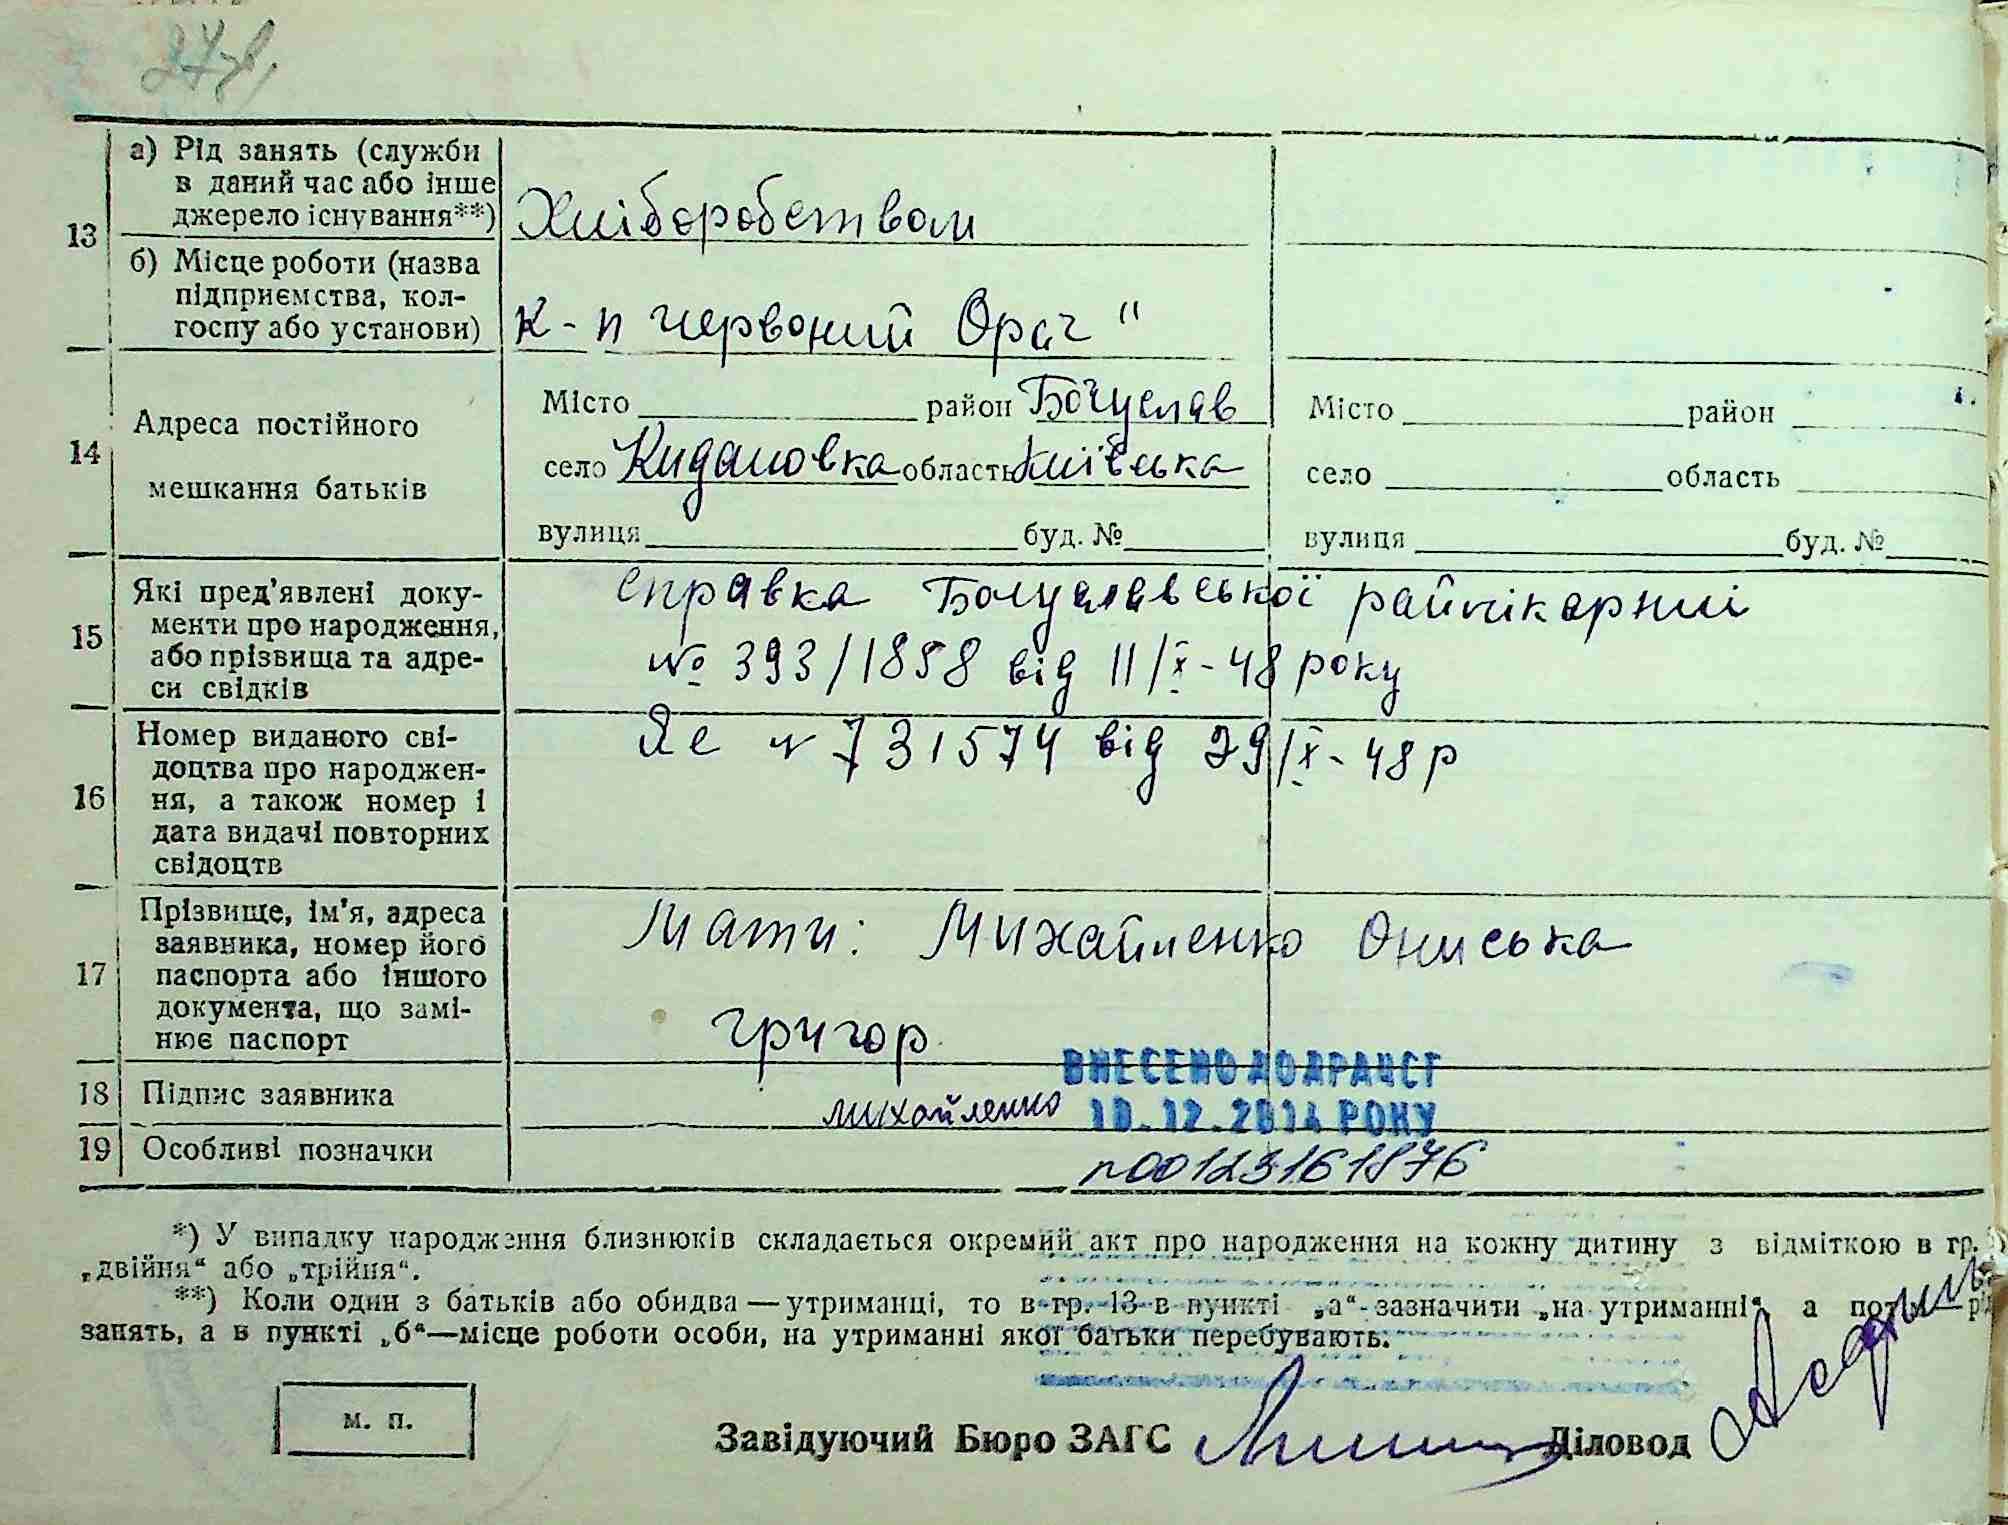 247
13
а) Рід занять (служби
в даний час або інше
джерело існування**)
Хліборобством
б) Місце роботи (назва
підприємства, кол-
госпу або установи)
к-п Червоний Орач"
14
Адреса постійного
мешкання батьків
Місто район Богуслав
село Кидановка область Київська
вулиця буд. №
Місто район
село область
вулиця буд. №
15
Які пред'явлені доку-
менти про народження,
або прізвища та адре-
си свідків
Справка Богуславської райлікарні
№ 393/1858 від 11/X-48 року
16
Номер виданого сві-
доцтва про народжен-
ня, а також номер і
дата видачі повторних
свідоцтв
Яе № 731574 від 29/X-48р
17
Прізвище, ім'я, адреса
заявника, номер його
паспорта або іншого
документа, що замі-
нює паспорт
Мати: Михайленко Ониська
Григор
18
Підпис заявника
михайленко
ВНЕСЕНО ДО ДРАЦСГ
10.12.2014 РОКУ
19
Особливі позначки
n00123161876
*) У випадку народження близнюків складається окремий акт про народження на кожну дитину з відміткою в гр.
„двійня“ або „трійня“.
**) Коли один з батьків або обидва — утриманці, то в гр. 13 в пункті „а“ зазначити „на утриманні“ а
занять, а в пункті „б“—місце роботи особи, на утриманні якої батьки перебувають.
м. п.
Завідуючий Бюро ЗАГС
Діловод